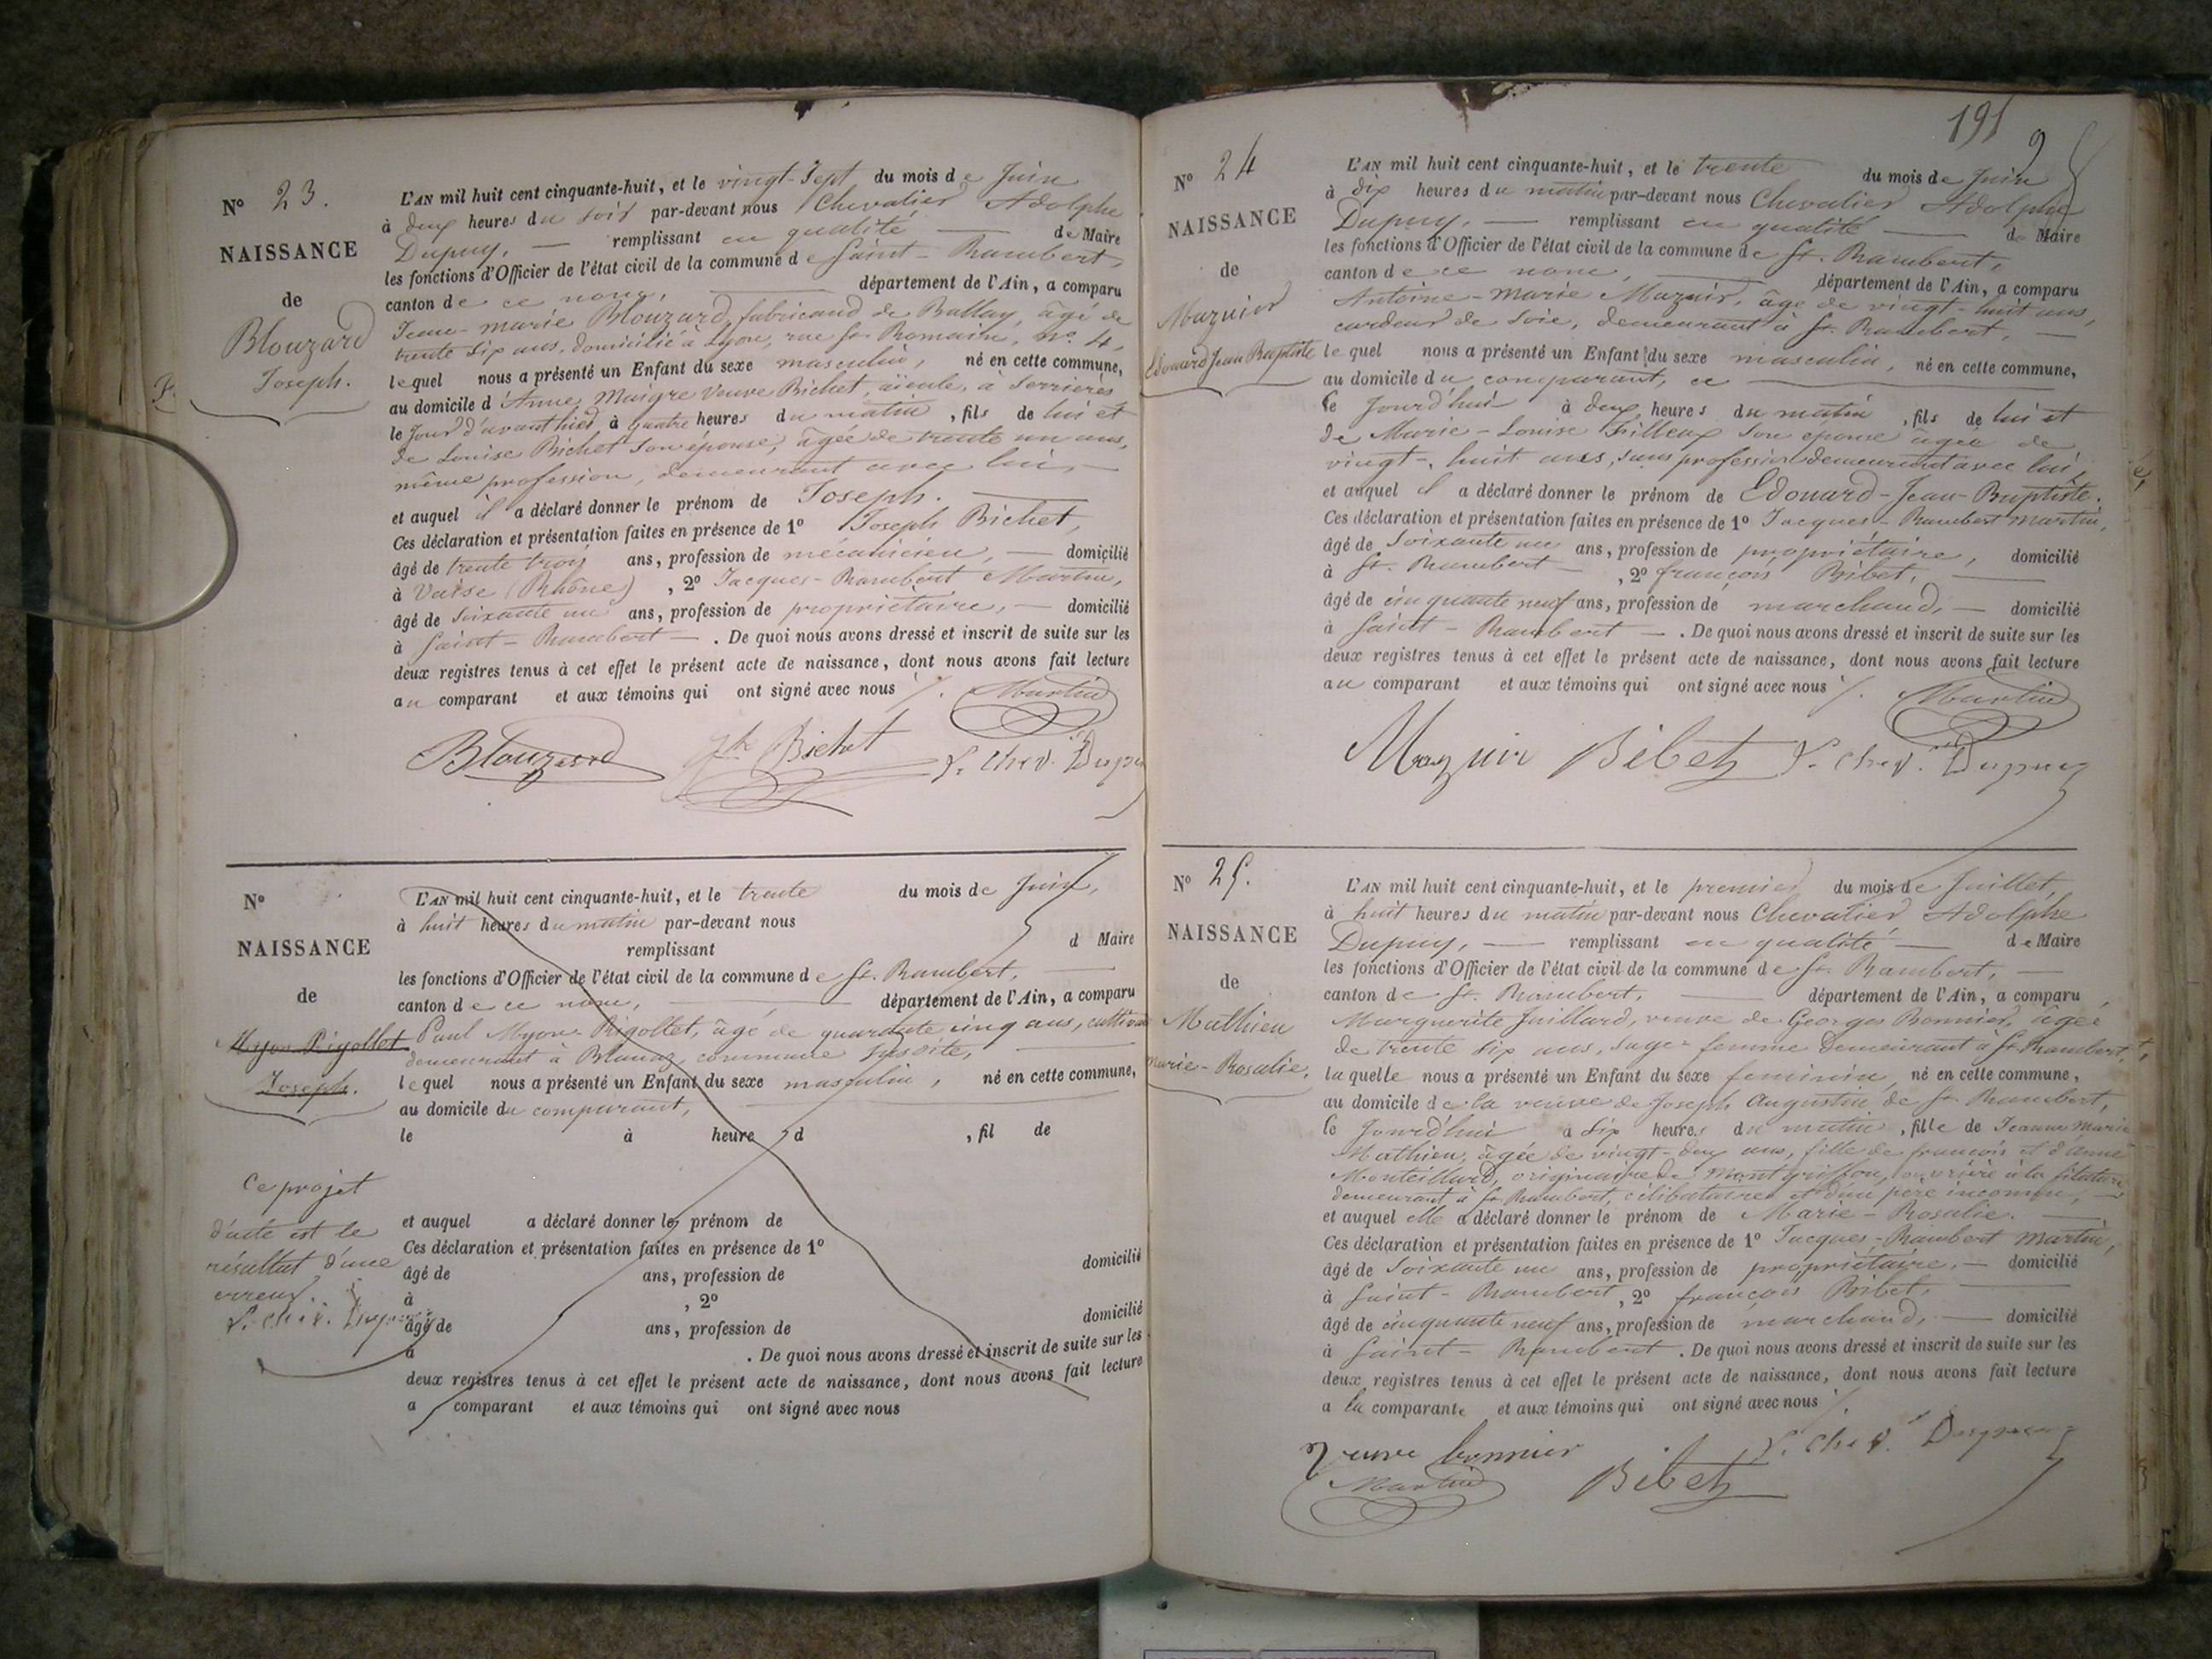 N° 23.
NAISSANCE
de
Blouzard
Joseph.
L'AN mil huit cent cinquante-huit, et le vingt-sept du mois de Juin
à deux heures du soir par-devant nous Chevalier Adolphe
Dupuy, — remplissant en qualité — de Maire
les fonctions d'Officier de l'état civil de la commune de Saint-Rambert,
canton de ce nom, — département de l'Ain, a comparu
Jean-marie Blouzard, fabricand de Ballay, âgé de
trente six ans, domicilié à Lyon, rue St. Romain, N°. 4,
lequel nous a présenté un Enfant du sexe masculin, né en cette commune,
au domicile d'Anne Maigre Veuve Bichet, aïeule, à Serrières
le jour d'avant hier à quatre heures du matin, fils de lui et
de Louise Bichet son épouse, âgée de trente un ans,
même profession, demeurant avec lui, —
et auquel il a déclaré donner le prénom de Joseph. —
Ces déclaration et présentation faites en présence de 1° Joseph Bichet,
âgé de trente trois ans, profession de mécanicien, — domicilié
à Vaise (Rhône), 2° Jacques-Rambert Martin,
âgé de soixante un ans, profession de propriétaire, — domicilié
à Saint-Rambert — . De quoi nous avons dressé et inscrit de suite sur les
deux registres tenus à cet effet le présent acte de naissance, dont nous avons fait lecture
au comparant et aux témoins qui ont signé avec nous /. Martin
Blouzard Jh Bichet L. Chev. Dupuy
N°
NAISSANCE
de
Myon Rigollet
Joseph.
Ce projet
d'acte est le
résultat d'une
erreur.
L. Chev. Dupuy
L'AN mil huit cent cinquante-huit, et le trente du mois de Juin,
à huit heures du matin par-devant nous
remplissant d Maire
les fonctions d'Officier de l'état civil de la commune de St. Rambert, —
canton de ce nom, — département de l'Ain, a comparu
Paul Myon Rigollet, âgé de quarante cinq ans,
demeurant à Blanaz, commune susdite, —
lequel nous a présenté un Enfant du sexe masculin, né en cette commune,
au domicile du comparant, —
le à heure d , fil de
et auquel a déclaré donner le prénom de
Ces déclaration et présentation faites en présence de 1°
âgé de ans, profession de domicilié
à , 2°
âgé de ans, profession de domicilié
à . De quoi nous avons dressé et inscrit de suite sur les
deux registres tenus à cet effet le présent acte de naissance, dont nous avons fait lecture
a comparant et aux témoins qui ont signé avec nous
191
N° 24
NAISSANCE
de
Mazuir
Edouard Jean Baptiste
L'AN mil huit cent cinquante-huit, et le trente du mois de Juin
à dix heures du matin par-devant nous Chevalier Adolphe
Dupuy, — remplissant en qualité — de Maire
les fonctions d'Officier de l'état civil de la commune de St. Rambert,
canton de ce nom, — département de l'Ain, a comparu
Antoine-marie Mazuir, âgé de vingt-huit ans,
cardeur de soie, demeurant à St. Rambert, —
lequel nous a présenté un Enfant du sexe masculin, né en cette commune,
au domicile du comparant, ce —
le jourd'hui à deux heures du matin, fils de lui et
de Marie-Louise Filleux son épouse âgée de
vingt-huit ans, sans profession demeurant avec lui,
et auquel il a déclaré donner le prénom de Edouard-Jean-Baptiste.
Ces déclaration et présentation faites en présence de 1° Jacques-Rambert Martin,
âgé de soixante un ans, profession de propriétaire, domicilié
à St. Rambert , 2° françois Bibet, —
âgé de cinquante neuf ans, profession de marchand, — domicilié
à Saint-Rambert — . De quoi nous avons dressé et inscrit de suite sur les
deux registres tenus à cet effet le présent acte de naissance, dont nous avons fait lecture
au comparant et aux témoins qui ont signé avec nous /. Martin
Mazuir Bibet L. Chev. Dupuy
N° 25.
NAISSANCE
de
Mathieu
Marie-Rosalie.
L'AN mil huit cent cinquante-huit, et le premier du mois de Juillet,
à huit heures du matin par-devant nous Chevalier Adolphe
Dupuy, — remplissant en qualité — de Maire
les fonctions d'Officier de l'état civil de la commune de St. Rambert, —
canton de St. Rambert, — département de l'Ain, a comparu
Marguerite Juillard, veuve de Georges Bonnier, âgée
de trente six ans, sage-femme demeurant à St. Rambert,
laquelle nous a présenté un Enfant du sexe feminin, né en cette commune,
au domicile de la veuve de Joseph Augustin de St. Rambert,
le jourd'hui à six heures du matin, fille de Jeanne Marie
Mathieu, âgée de vingt-deux ans, fille de françois et d'anne
Monteillard, originaire de Montgriffon, ouvrière à la filature
demeurant à St. Rambert, célibataire et d'un père inconnu, —
et auquel elle a déclaré donner le prénom de Marie-Rosalie. —
Ces déclaration et présentation faites en présence de 1° Jacques-Rambert Martin,
âgé de soixante un ans, profession de propriétaire, — domicilié
à Saint-Rambert, 2° françois Bibet, —
âgé de cinquante neuf ans, profession de marchand, — domicilié
à Saint-Rambert . De quoi nous avons dressé et inscrit de suite sur les
deux registres tenus à cet effet le présent acte de naissance, dont nous avons fait lecture
a la comparante et aux témoins qui ont signé avec nous /.
veuve bonnier L. Chev. Dupuy
Martin Bibet